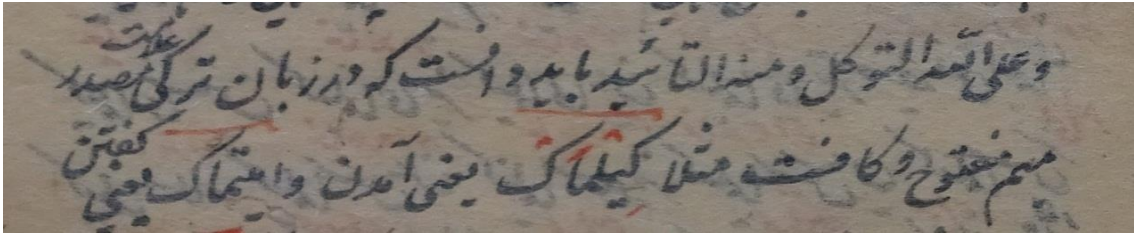 و علی الله التوکل و منه التائید باید دانست که در زبان ترکی علامت مصدر
میم مفتوح و کافست مثلا کیلماک یعنی آمدن و ایتماک یعنی گفتن